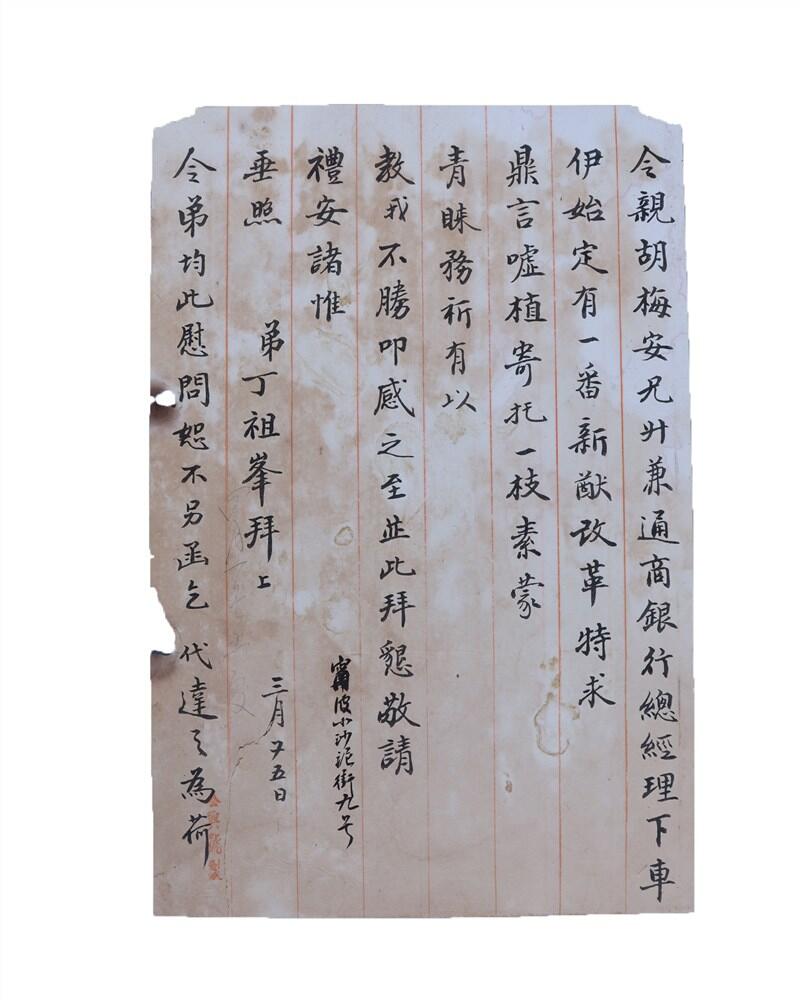 令親胡梅安兄升兼通商銀行總經理下車
伊始定有一番新猷改革特求
鼎言噓植寄托一枝素蒙
青睞務祈有以
教我不勝叩感之至並此拜懇敬請
禮安諸惟
甯波小沙泥街九号
垂照
弟丁祖峯拜上
三月廿五日
令弟均此慰問恕不另函乞代達之為荷